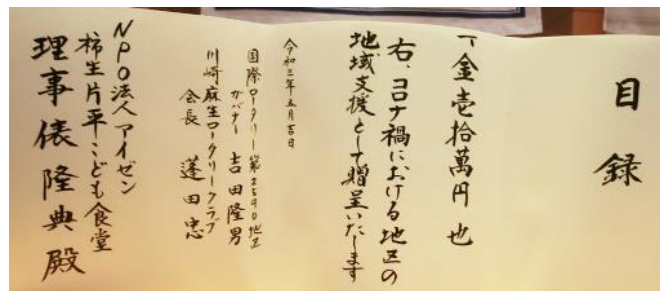 目録
一、金壱拾萬円也
右、コロナ禍における地区の
地域支援として贈呈いたします
令和三年五月吉日
国際ロータリー第2590地区
ガバナー 吉田隆男
川崎麻生ロータリークラブ
会長 蓮田忠
NPO法人アイゼン
柿生片平こども食堂
理事 俵隆典殿